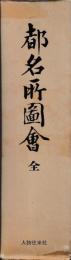 都名所圖會 全
人物往来社